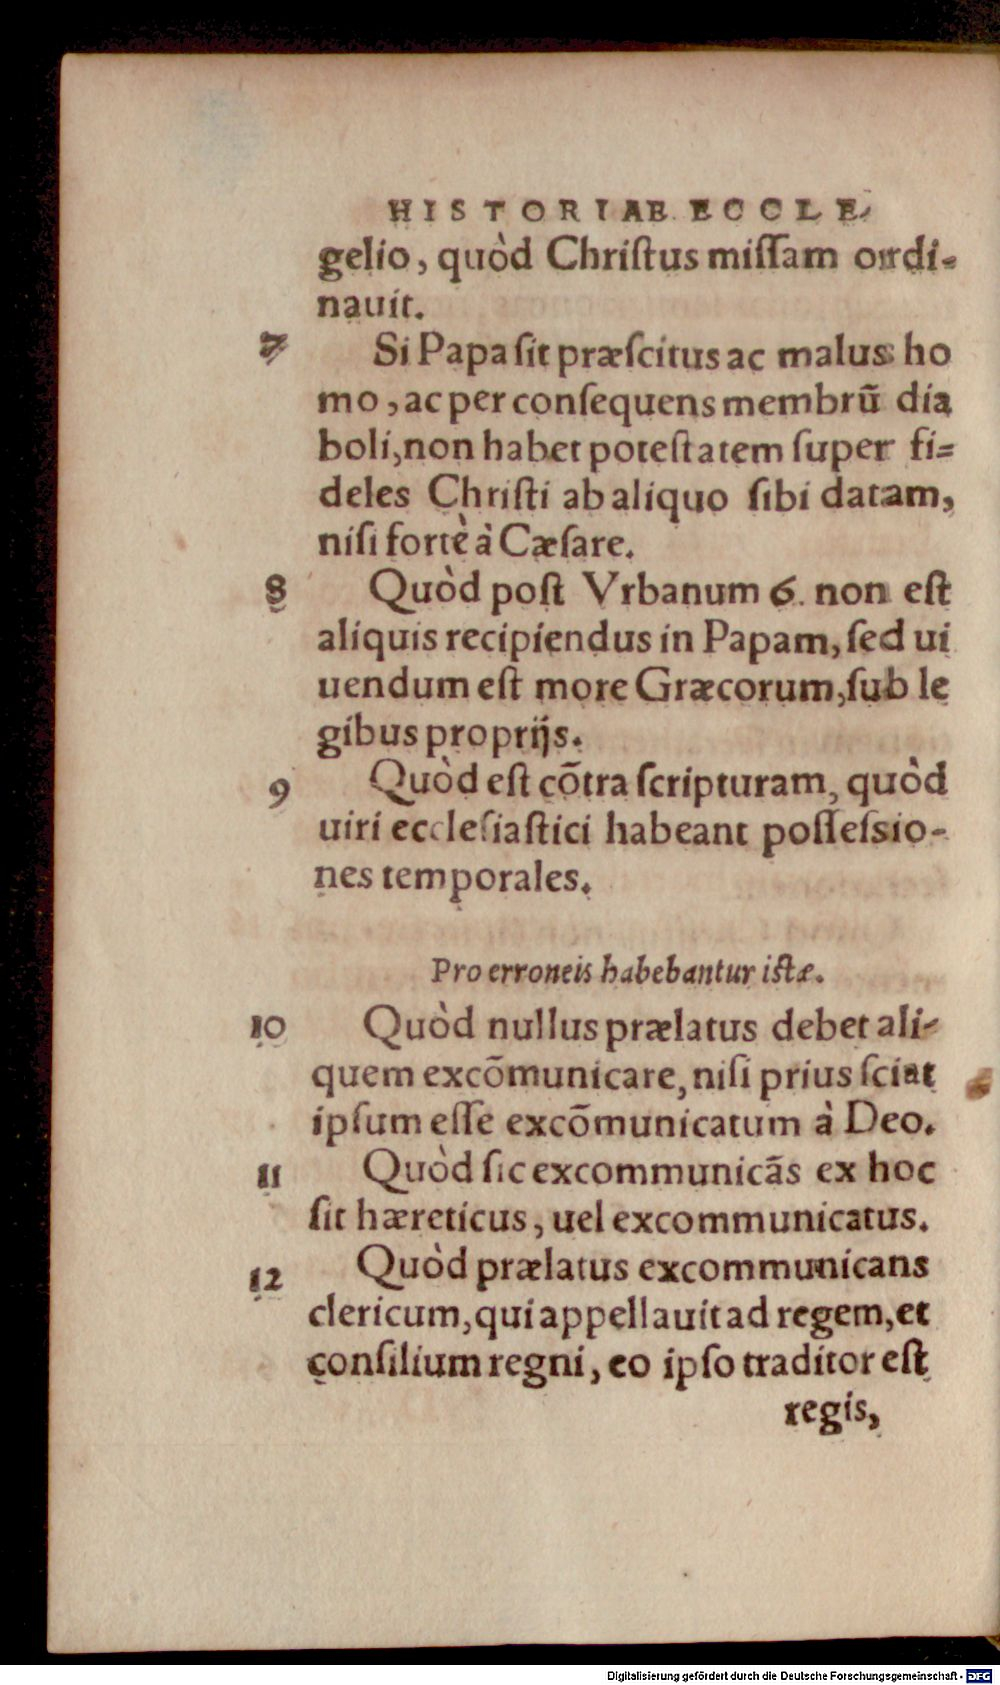 HISTORIAE ECCLE-
gelio, quòd Chriſtus miſſam ordi-
nauit.
7 Si Papa ſit præſcitus ac malus ho
mo, ac per conſequens membrũ dia
boli, non habet poteſtatem ſuper fi-
deles Chriſti ab aliquo ſibi datam,
niſi fortè à Cæſare.
8 Quòd poſt Vrbanum 6. non eſt
aliquis recipiendus in Papam, ſed ui
uendum eſt more Græcorum, ſub le
gibus proprijs.
9 Quòd eſt cõtra ſcripturam, quòd
uiri eccleſiaſtici habeant poſſeſsio-
nes temporales.
Pro erroneis habebantur iſtæ.
10 Quòd nullus prælatus debet ali-
quem excõmunicare, niſi prius ſciat
ipſum eſſe excõmunicatum à Deo.
11 Quòd ſic excommunicãs ex hoc
ſit hæreticus, uel excommunicatus.
12 Quòd prælatus excommunicans
clericum, qui appellauit ad regem, et
conſilium regni, eo ipſo traditor eſt
regis,
Digitalisierung gefördert durch die Deutsche Forschungsgemeinschaft - DFG